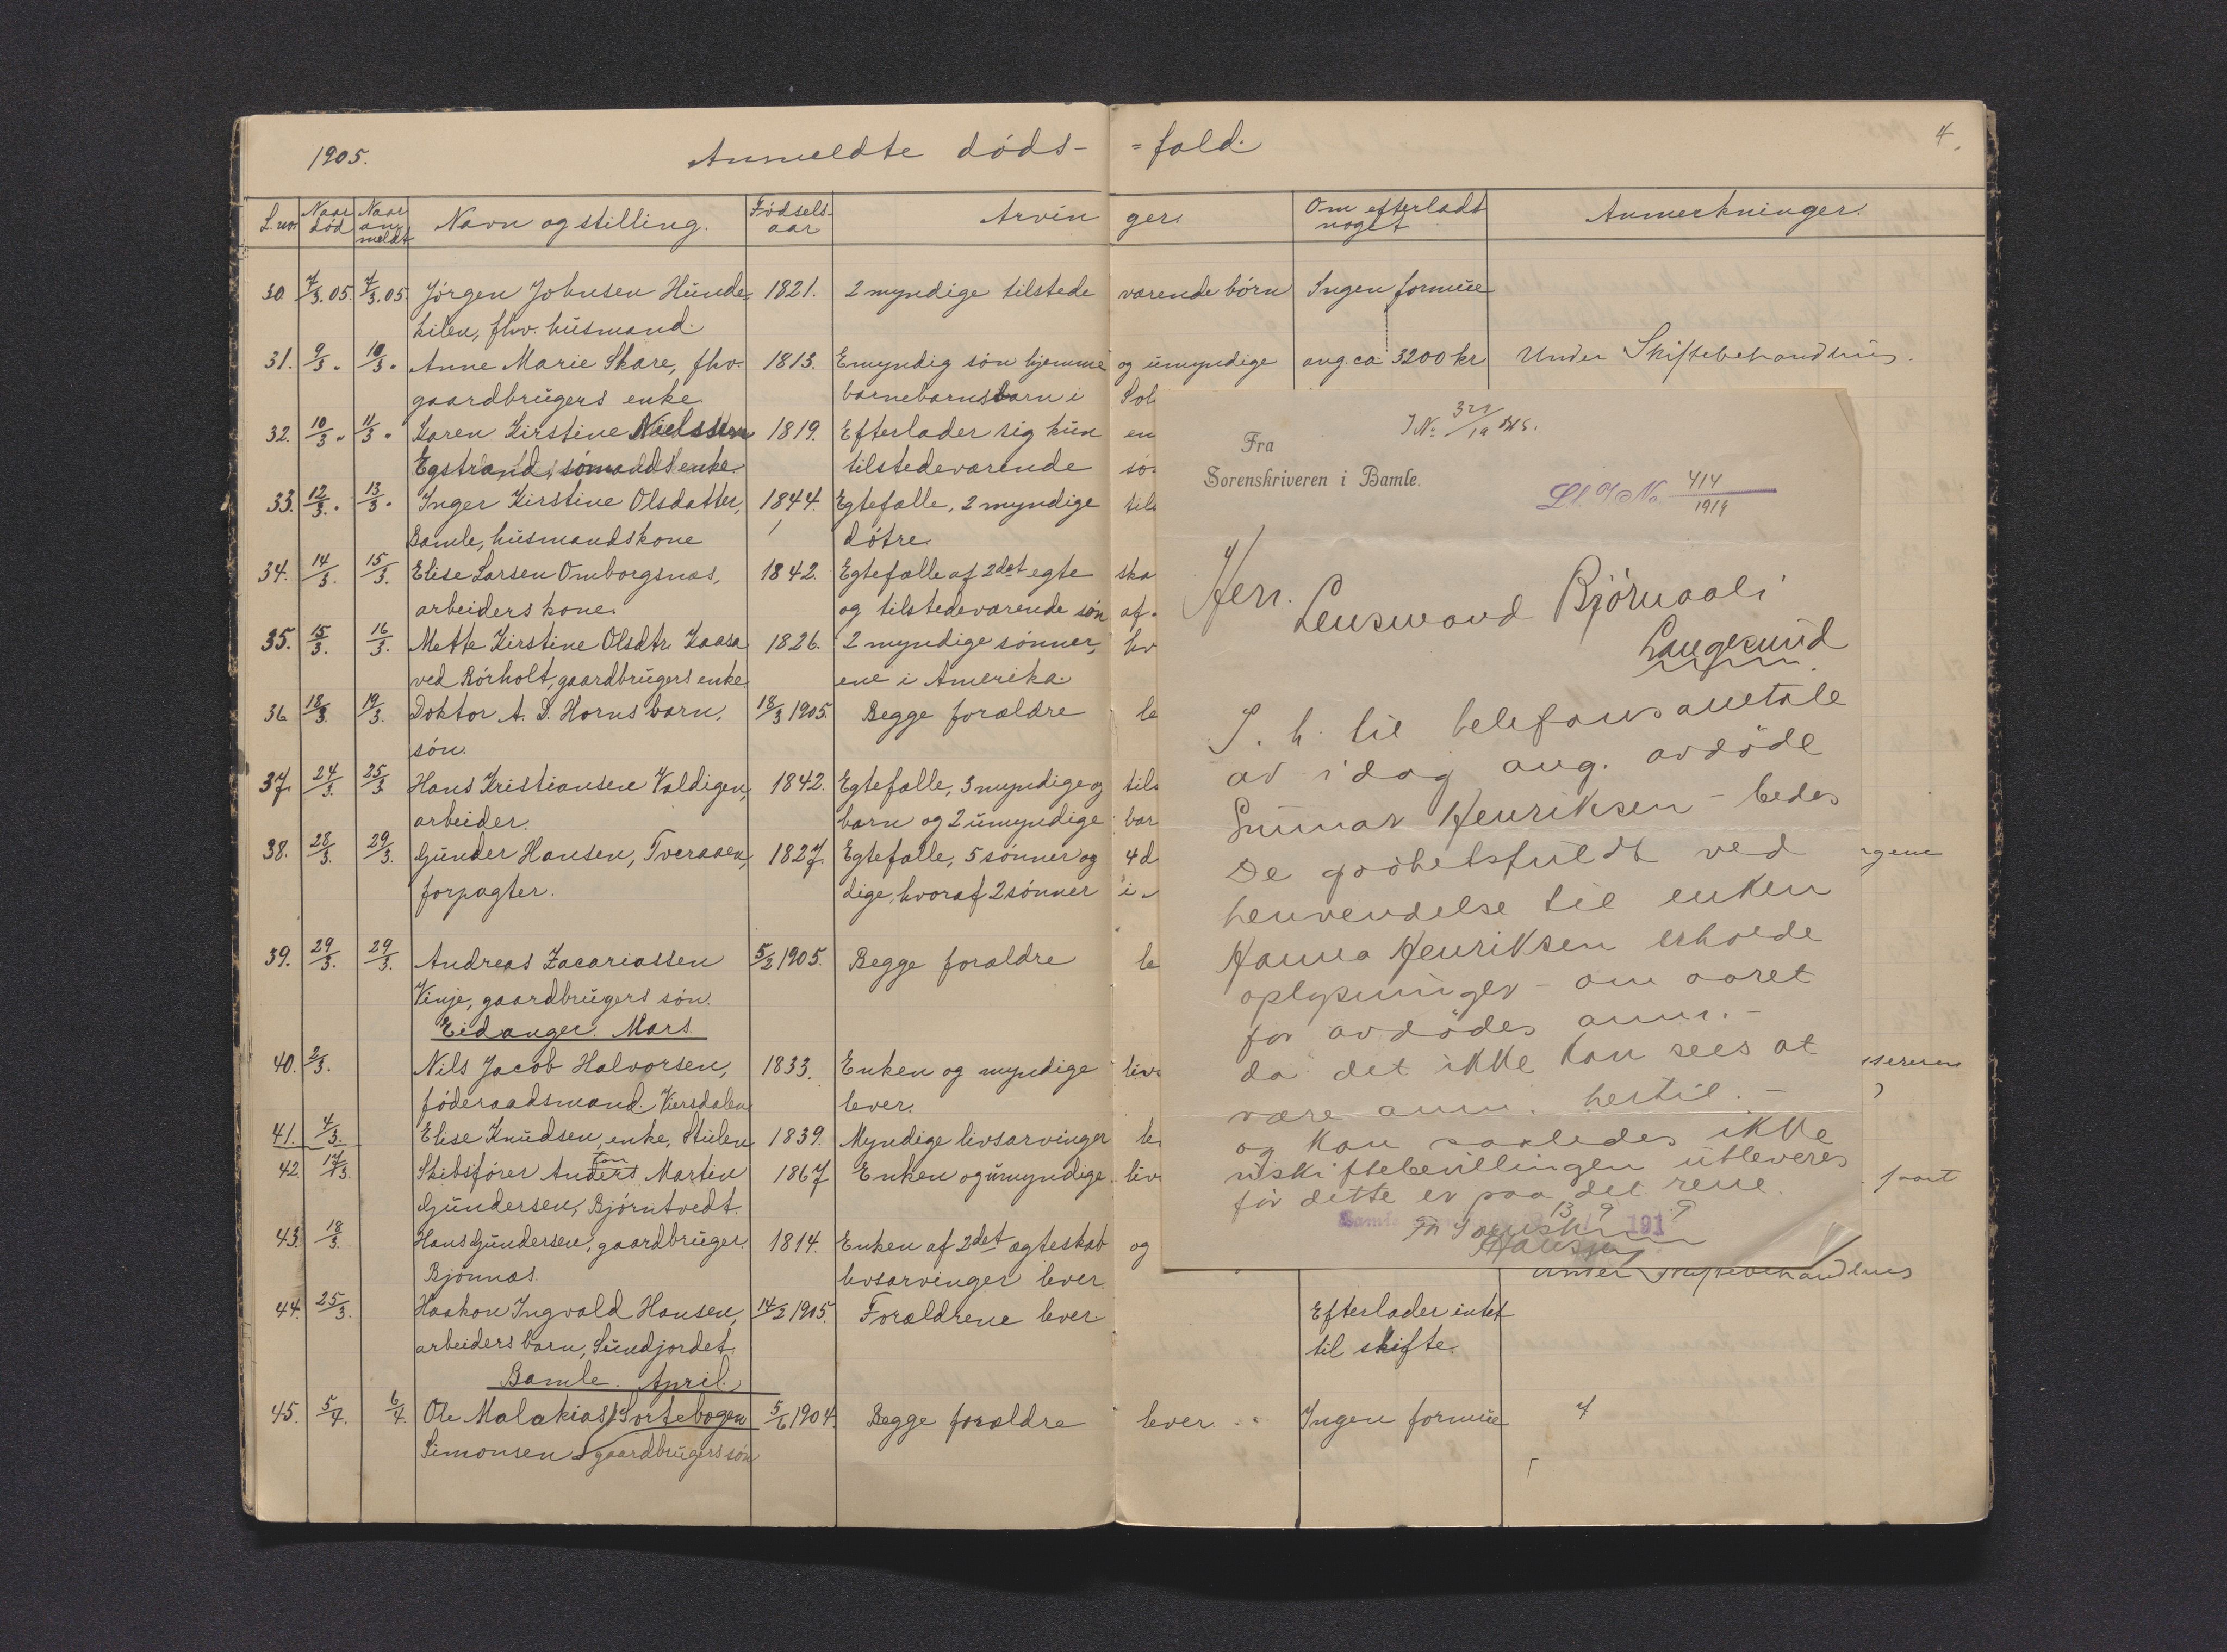 1905. Anmeldte døds- =fald. 4.
L.nor Naar død Naar anmeldt Navn og stilling. Fødselsaar Arvin ger. Om efterladt noget Anmerkninger.
30. 7/3.05. 7/3.05. Jørgen Johnsen Hunde- 1821. 2 myndige tilstede værende børn Ingen formue
kilen, fhv. husmand.
31. 9/3 " 10/3 " Anne Marie Skare, fhv. 1813. E myndig søn hjemme og umyndige ang. ca 3200 kr Under Skiftebehandling.
gaardbrugers enke barnebarnsbarn i
32. 10/3 " 11/3 " Karen Kirstine Nielssen 1819. Efterlader sig kun en
Egstrand, sømands enke. tilstedeværende
33. 12/3. " 13/3 " Inger Kirstine Olsdatter, 1844. Egtefælle, 2 myndige
Bamle, husmandskone døtre.
34. 14/3. 15/3. Elise Larsen Omborgsnæs, 1842. Egtefælle af 2det egte ska
arbeiders kone. og tilstedeværende søn af
35. 15/3. 16/3. Mette Kirstine Olsdtr. Kaasa 1826. 2 myndige sønner,
ved Rørholt, gaardbrugers enke. ene i Amerika.
36 18/3. 19/3. Doktor A. D. Horns barn, 18/3 1905. Begge forældre
søn.
37. 24/3. 25/3 Hans Kristiansen Valdigen, 1842. Egtefælle, 3 myndige og
arbeider. barn og 2 umyndige
38. 28/3. 29/3. Gunder Hansen, Tveraaen, 1827. Egtefælle, 5 sønner og 4 d
forpagter. dige, hvoraf 2 sønner i
39. 29/3. 29/3. Andreas Zacariassen 5/2 1905. Begge forældre
Vinje, gaardbrugers søn.
Eidanger. Mars.
40. 2/3. Nils Jacob Halvorsen, 1833. Enken og myndige
føderaadsmand. Versdalen lever.
41. 4/3. Elise Knudsen, enke, Stulen 1839. Myndige livsarvinger
42. 17/3. Skibsfører Anders ton Martin 1867 Enken og umyndige
Gundersen, Bjørntvedt.
43. 18/3. Hans Gundersen, gaardbruger. 1814. Enken af 2det ægteskab og
Bjønnæs. livsarvinger lever. Under Skiftebehandling
44. 25/3. Haakon Ingvald Hansen, 14/2 1905. Forældrene lever Efterlader intet
arbeiders barn, Sundjordet. til skifte.
Bamle. April.
45. 5/4. 6/4. Ole Malakias Sortebogen 5/6 1904. Begge forældre lever. Ingen formue
Simonsen gaardbrugers søn
Fra
Sorenskriveren i Bamle.
414
1919
Herr.
Lensmand Bjørnaali
Langesund
I. h. til telefonsamtale
av idag ang. avdøde
Gunnar Henriksen - bedes
De godhetsfuldt ved
henvendelse til enken
Hanna Henriksen erholde
oplysninger - om aaret
for avdødes anm. -
da det ikke kan sees at
være anm. hertil. -
og kan saaledes ikke
uskiftebevillingen utleveres
før dette er paa det rene.
13 9 1919